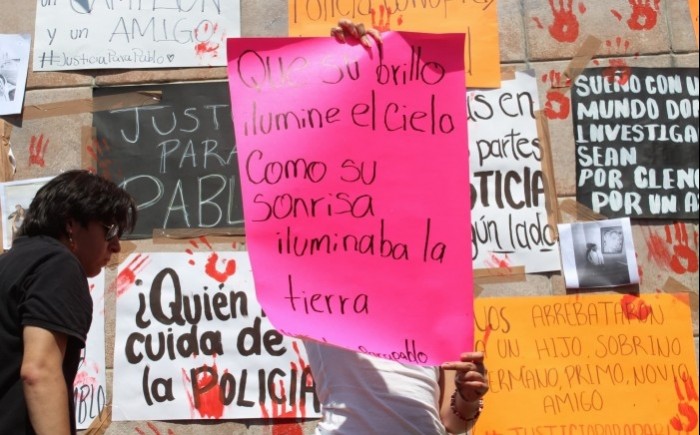 un CAMPEÓN
y un AMIGO
#JusticiaParaPablo
Policia
JUST
PARA
PABL
Que su brillo
ilumine el cielo
Como su
sonrisa
iluminaba la
tierra
pablo
en
partes
TICIA
lado
SUEÑO CON U
MUNDO DO
INVESTIGA
SEAN
POR CLEN
POR UN A
¿Quién
cuida de
la POLICIA
NOS ARREBATARON
UN HIJO, SOBRINO
HERMANO, PRIMO, NOVIO
AMIGO